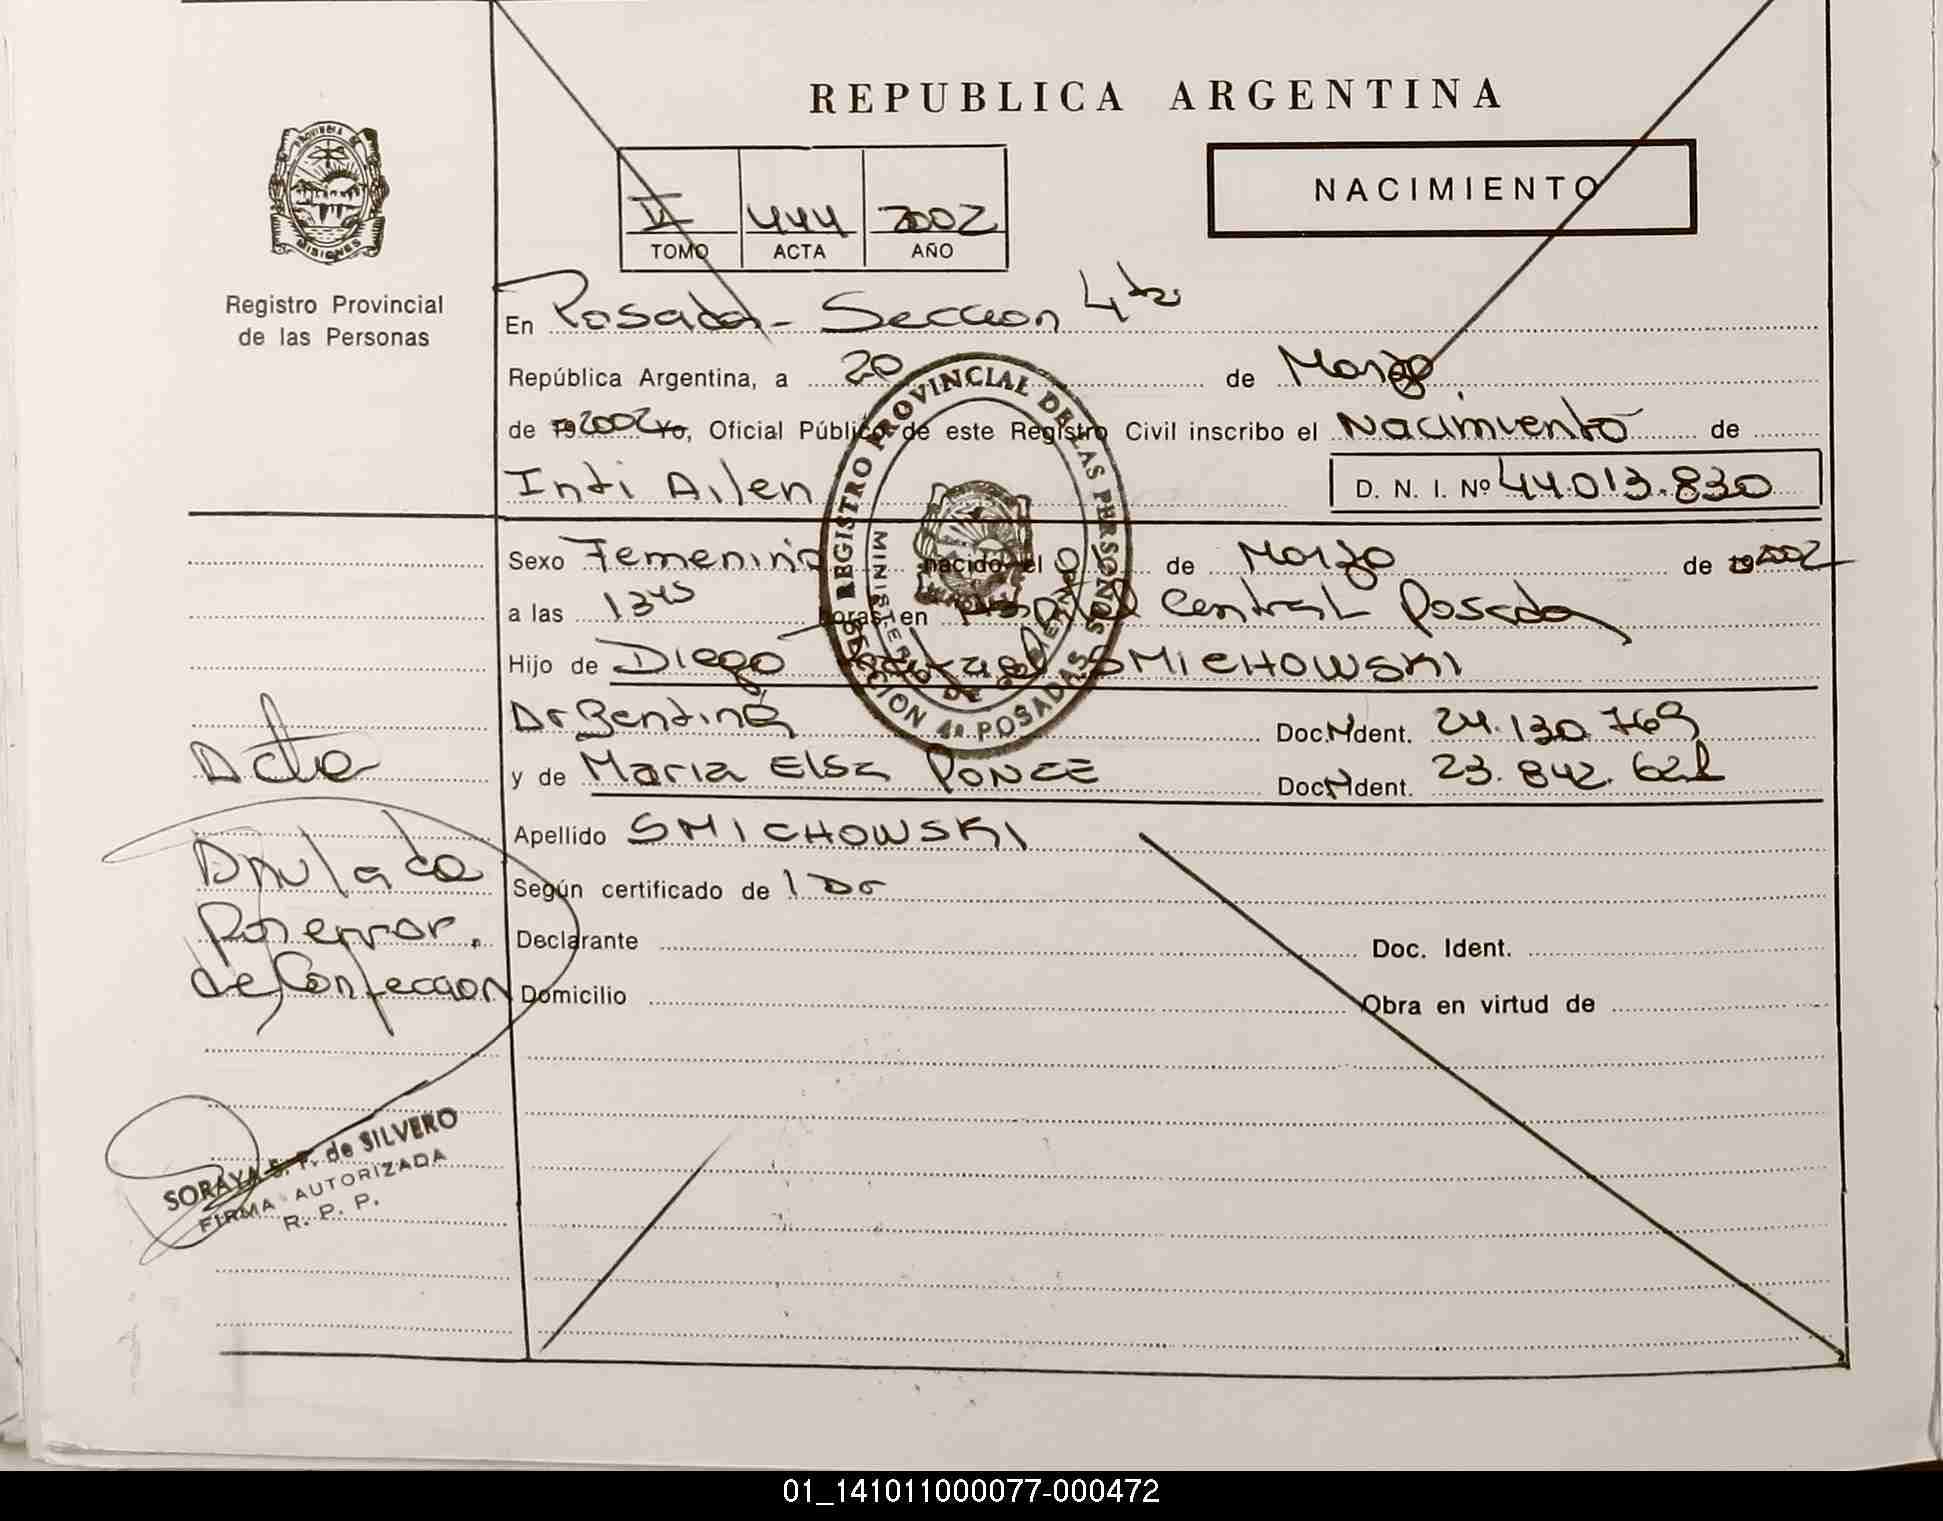 REPUBLICA ARGENTINA
PROVINCIA DE MISIONES
Registro Provincial
de las Personas
NACIMIENTO
444 2002
TOMO ACTA AÑO
En Posadas - Seccion 4ta
República Argentina, a 20 de Marzo
de 19 2002 Yo, Oficial Público de este Registro Civil inscribo el Nacimiento de
Inti Ailen D. N. I. Nº 44.013.830
REGISTRO PROVINCIAL DE LAS PERSONAS
MINISTERIO DE GOBIERNO
SECCION 4a POSADAS MISIONES
Sexo Femenino nacido el 01 de Marzo de 19 2002
a las 13 45 horas, en Hospital Central Posadas
Hijo de Diego SMICHOWSKI
Argentina Doc. Ident. 24.130.769
y de Maria Elsa PONCE Doc. Ident. 23.842.621
Apellido SMICHOWSKI
Según certificado de
Declarante Doc. Ident.
Domicilio Obra en virtud de
Acta
Anulada
Por error
de Confeccion
SORAYA S. F. de SILVERO
FIRMA AUTORIZADA
R. P. P.
01_141011000077-000472